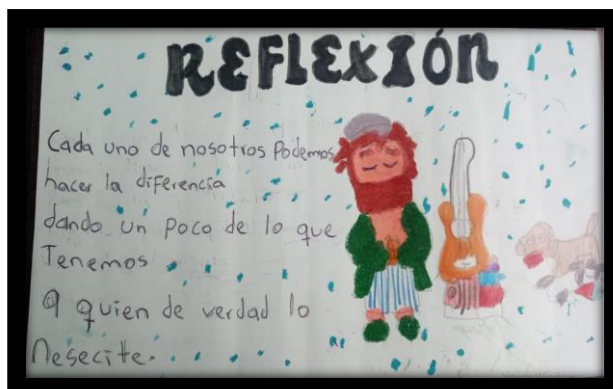 REFLEXIÓN
Cada uno de nosotros Podemos
hacer la diferencia
dando un poco de lo que
Tenemos
a quien de verdad lo
Nesecite.